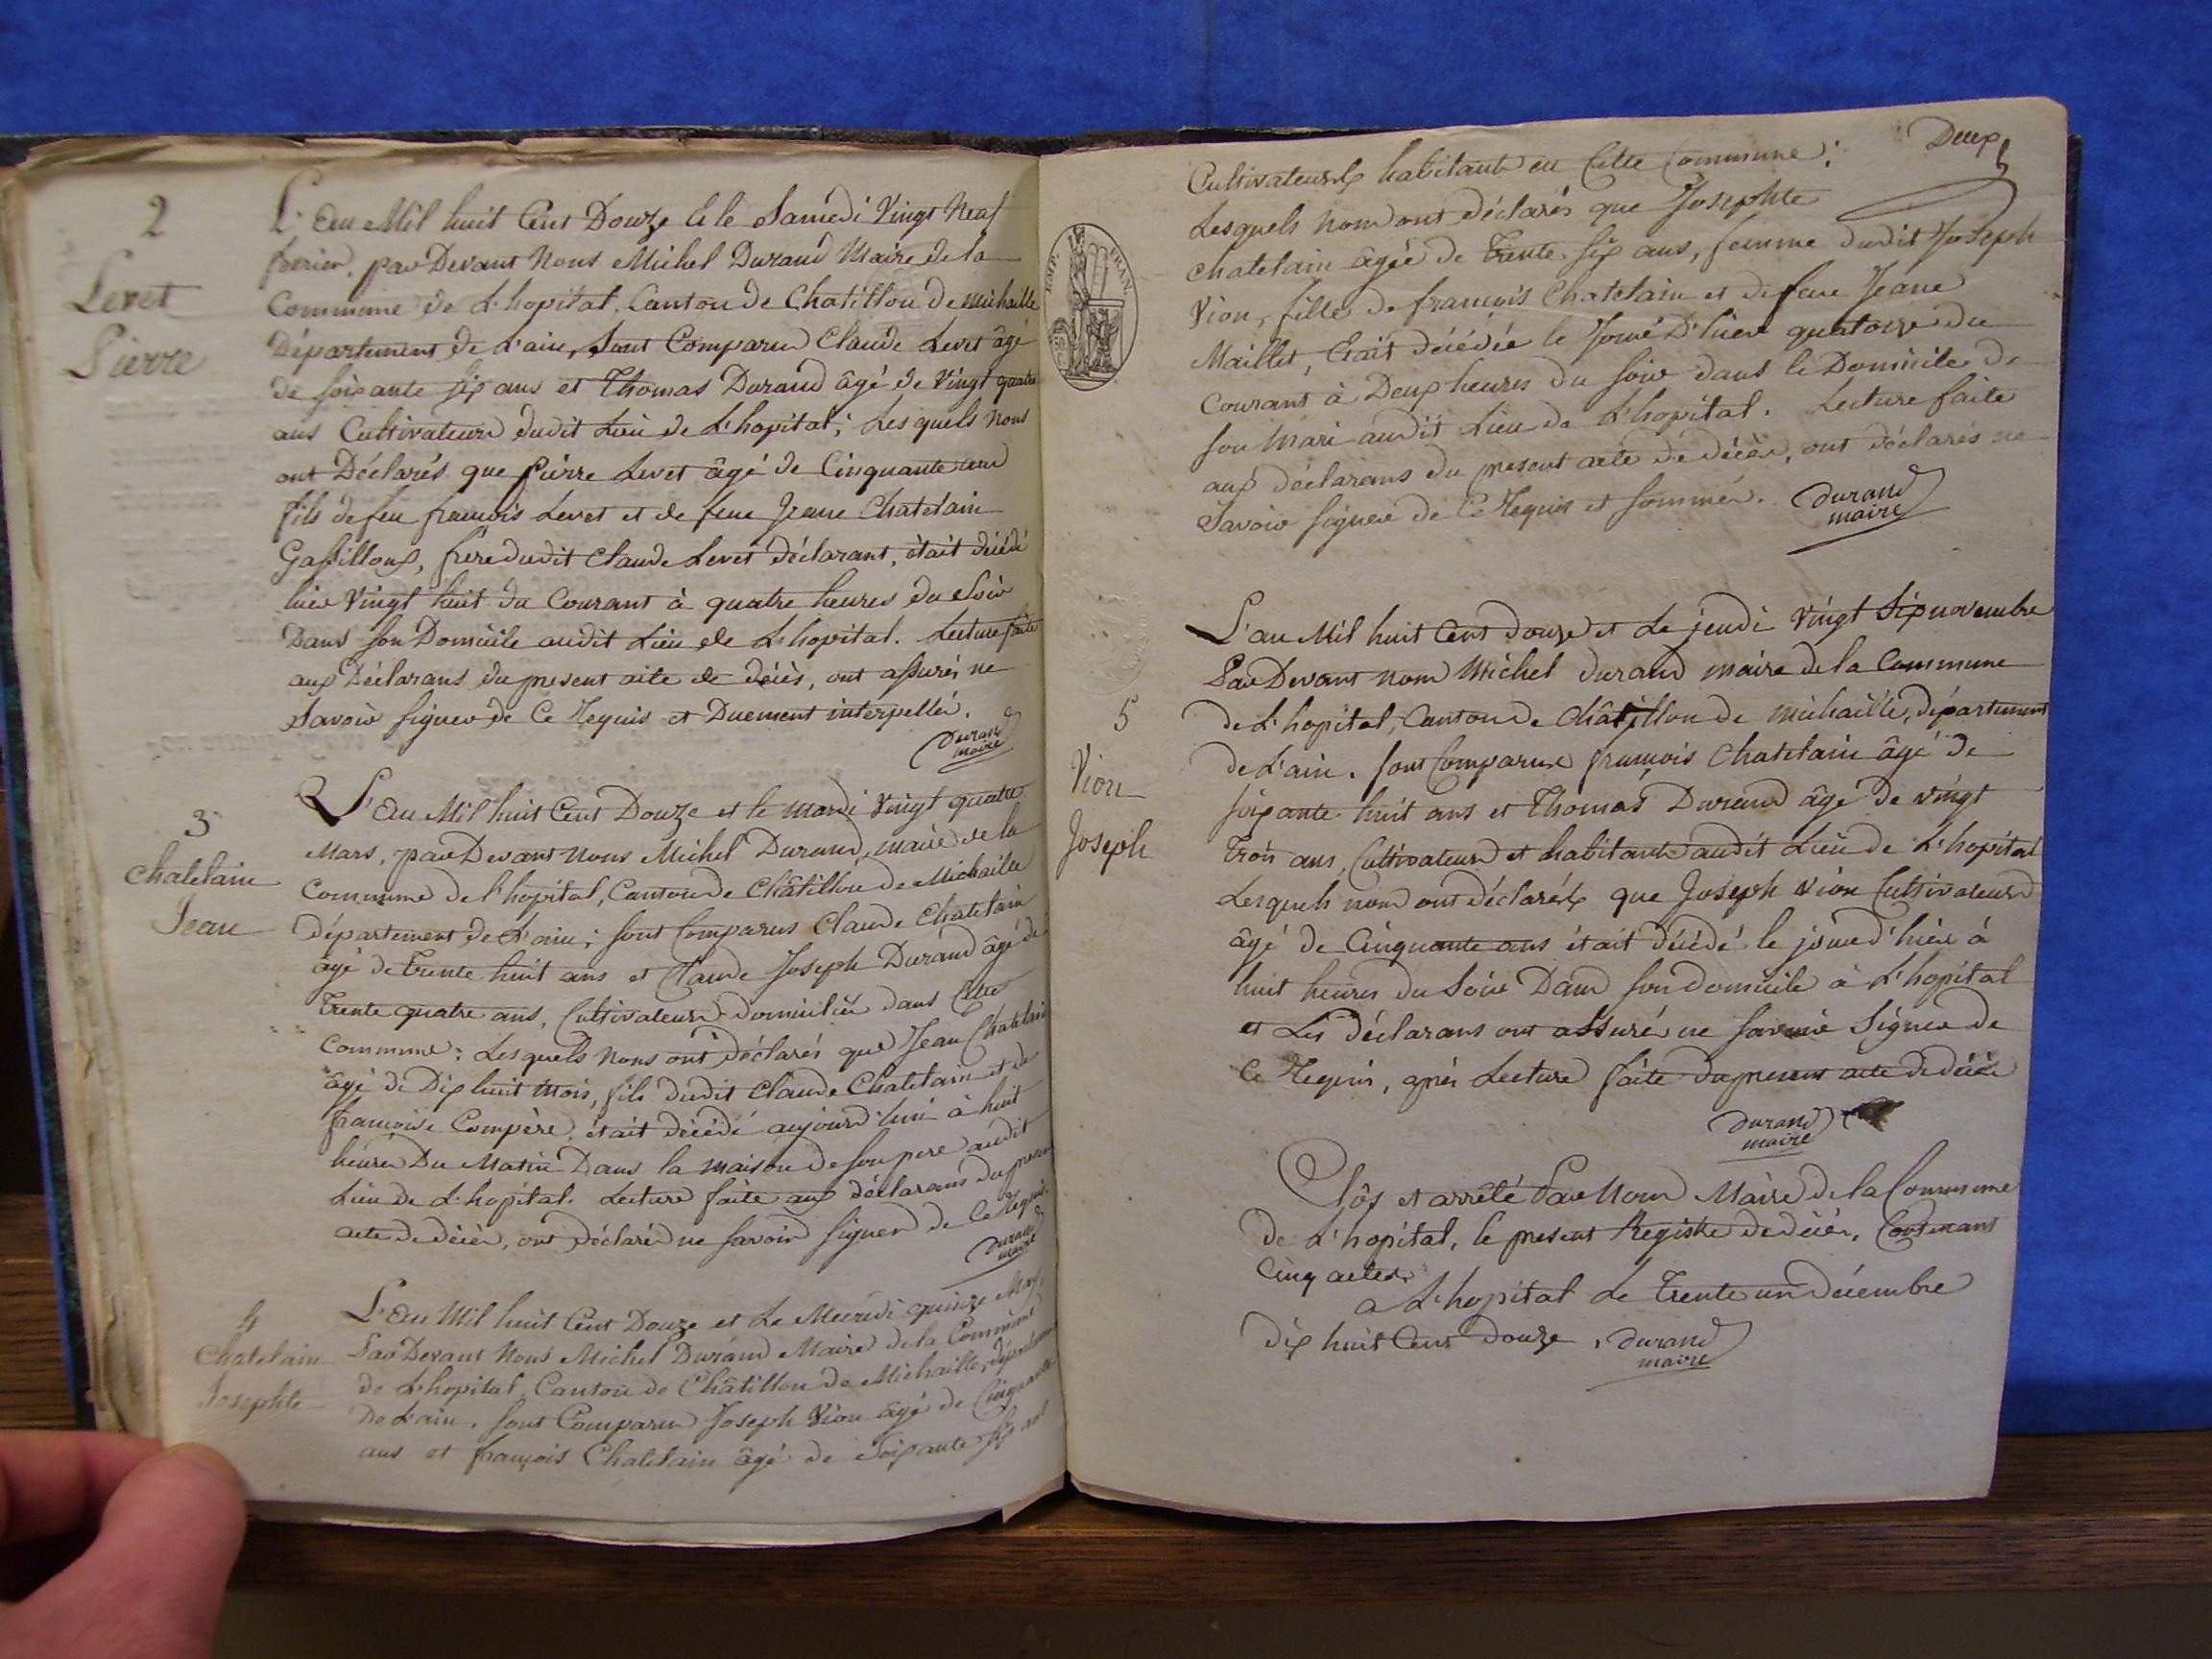 2
Levet
Pierre
L'an Mil huit Cent Douze et le Samedi Vingt Neuf
fevrier, par Devant Nous Michel Durand Maire de la
Commune de L'hopital, Canton de Chatillon de michaille
Département de L'ain, Sont Comparus Claude Levet âgé
de soixante six ans et Thomas Durand âgé de Vingt quatre
ans Cultivateurs dudit Lieu de L'hopital; Lesquels Nous
ont Déclarés que Pierre Levet âgé de Cinquante
fils de feu francois Levet et de feue Jeane Chatelain
frere dudit Claude Levet déclarant, était décédé
hier Vingt huit du Courant à quatre heures du Soir
Dans son Domicile audit Lieu de L'hopital. Lecture faite
aux Déclarans du present acte de décès, ont assurés ne
Savoir signer de Ce Requis et Duement interpellés.
Durand
maire
3
Chatelain
Jean
L'an Mil huit Cent Douze et le Mardi Vingt quatre
Mars, par Devant Nous Michel Durand, maire de la
Commune de l'hopital, Canton de Châtillon de Michaille
Département de L'ain; sont Comparus Claude Chatelain
âgé de trente huit ans et Claude Joseph Durand âgé de
trente quatre ans, Cultivateurs domiciliés dans Cette
Commune: Lesquels Nous ont déclarés que Jean Chatelain
âgé de Dix huit Mois, fils dudit Claude Chatelain et de
francoise Compère, était décédé aujourd'hui à huit
heures Du Matin Dans la maison de son pere audit
Lieu de L'hopital. Lecture faite aux déclarans du present
acte de décès, ont déclarés ne savoir signer de Ce Requis.
Durand
maire
4
Chatelain
Josephte
L'an Mil huit Cent Douze et Le Mecredi quinze
Par Devant Nous Michel Durand Maire de la Commune
de L'hopital, Canton de Châtillon de Michaille, département
De L'ain, sont Comparus Joseph Vion âgé de Cinquante
ans et françois Chatelain âgé de Soixante six ans
Deux
Cultivateurs habitants en Cette Commune;
Lesquels nous ont déclarés que Josephte
Chatelain âgée de trente six ans, femme dudit Joseph
Vion, fille de francois Chatelain et de feue Jeane
Maillet, Etait décédée le Jour D'hier quatorze du
Courant à Deux heures du soir dans le Domicile de
son Mari audit Lieu de L'hopital. Lecture faite
aux déclarans du present acte de décès, ont déclarés ne
Savoir signer de Ce Requis et sommés.
Durand
maire
EMP. FRAN.
5
Vion
Joseph
L'an Mil huit Cent douze et Le jeudi Vingt Six novembre
Par Devant nous Michel durand maire de la Commune
de L'hopital, Canton de Châtillon de michaille, département
de L'ain. sont Comparus francois Chatelain âgé de
soixante huit ans et Thomas Durand âgé de vingt
trois ans, Cultivateurs et habitants audit Lieu de L'hopital
Lesquels nous ont déclarés que Joseph Vion Cultivateur
âgé de Cinquante ans était décédé le jour d'hier à
huit heures du Soir Dans son domicile à L'hopital
et Les déclarans ont assuré ne savoir Signer de
Ce Requis, après Lecture faite du present acte de décès
Durand
maire
Clôs et arrêté Par Nous Maire de la Commune
de L'hopital, le present Registre de décès, Contenant
Cinq actes.
a L'hopital Le trente un décembre
dix huit Cent douze. Durand
maire